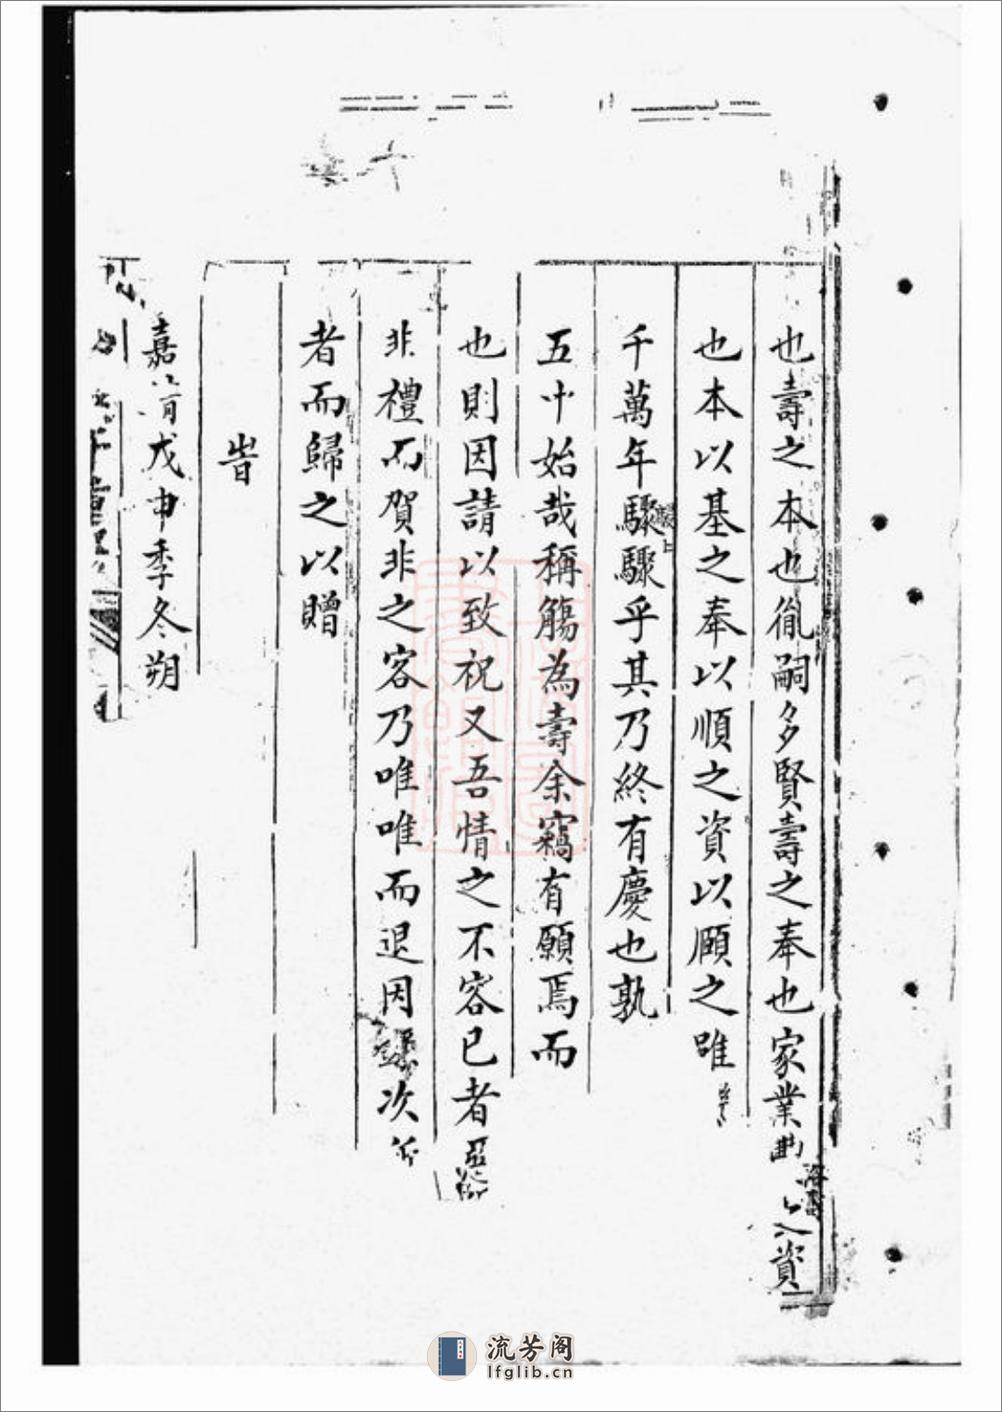 也壽之本也胤嗣多賢壽之奉也家業 資
也本以基之奉以順之資以頤之唯
千萬年驟驟乎其乃終有慶也孰
五中始哉稱觴為壽余竊有願焉而
也則因請以致祝又吾情之不容已者
非禮而賀非之客乃唯唯而退因 次
者而歸之以贈
旹
嘉靖戊申季冬朔
流芳阁
lfglib.cn